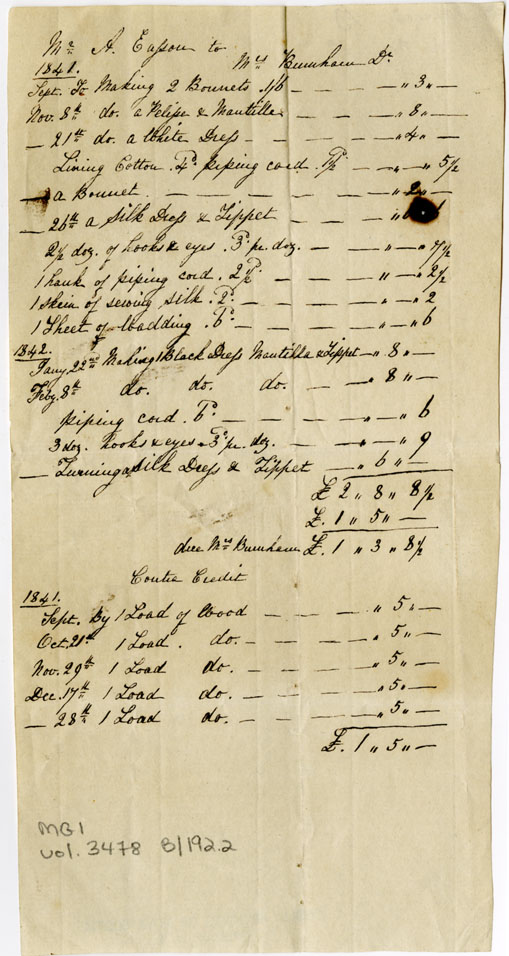 Mr A. Easson to
Mrs Burnham Dr
1841.
Sept. To Making 2 Bonnets. 1/6 — — — — " 3 " —
Nov. 8th do. a Pelise & Mantille — — — " 8 " —
— 21st do. a White Dress — — — " 4 " —
Lining Cotton. 4d. piping cord. 1½d — " — " 5½
— a Bonnet — — — — — — " 2 " —
— 26th a Silk Dress & Tippet — — "
2½ doz. of hooks & eyes. 3d. pr. doz. — — " — " 7½
1 hank of piping cord. 2½d. — — — " — " 2½
1 Skein of sewing silk. 2d. — — — " — " 2
1 Sheet of Wadding. 6d. — — — " — " 6
1842.
Jany. 22nd Making 1 Black Dress Mantilla & Tippet — " 8 " —
Feby. 8th do. do. do. — — " 8 " —
piping cord. 6d. — — — — " — " 6
3 doz. hooks & eyes. 3d. pr. doz. — — " — " 9
— Turning a Silk Dress & Tippet — " 6 " —
£ 2 " 8 " 8½
£. 1 " 5 " —
due Mrs Burnham £. 1 " 3 " 8½
Contra Credit
1841.
Sept. By 1 Load of Wood — — — " 5 " —
Oct. 21st 1 Load. do. — — — " 5 " —
Nov. 29th 1 Load do. — — — " 5 " —
Dec. 17th 1 Load do. — — — " 5 " —
— 28th 1 Load do. — — — " 5 " —
£. 1 " 5 " —
MG1
vol. 3478 B/192.2